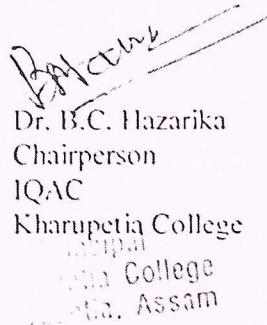 Dr. B.C. Hazarika
Chairperson
IQAC
Kharupetia College
College
Assam